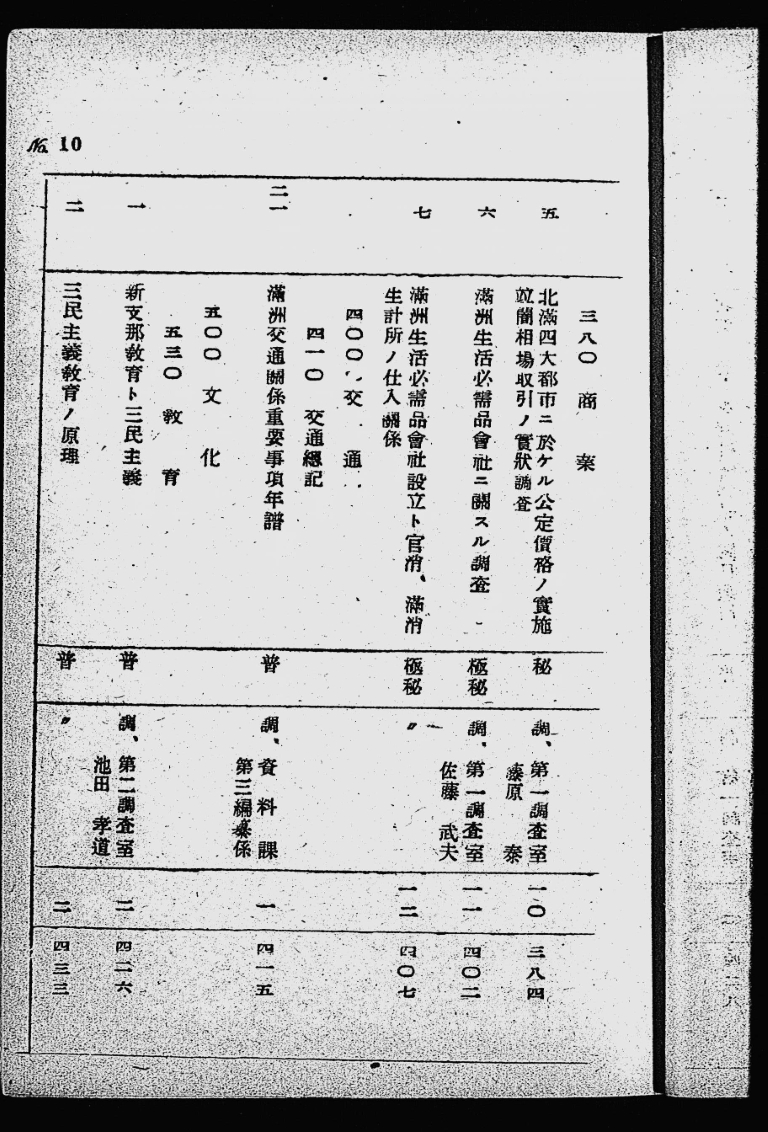 No. 10
三八〇 商業
五
北滿四大都市ニ於ケル公定價格ノ實施
竝闇相場取引ノ實狀調査
秘
調、第一調査室
藤原 泰
一〇
三八四
六
滿洲生活必需品會社ニ關スル調査
極秘
調、第一調査室
佐藤 武夫
一一
四〇二
七
滿洲生活必需品會社設立ト官消、滿消
生計所ノ仕入關係
極秘
〃
一二
四〇七
四〇〇 交通
四一〇 交通總記
二一
滿洲交通關係重要事項年譜
普
調、資料課
第三編纂係
一
四一五
五〇〇 文化
五三〇 教育
一
新支那教育ト三民主義
普
調、第二調査室
池田 孝道
二
四二六
二
三民主義教育ノ原理
普
〃
二
四三三